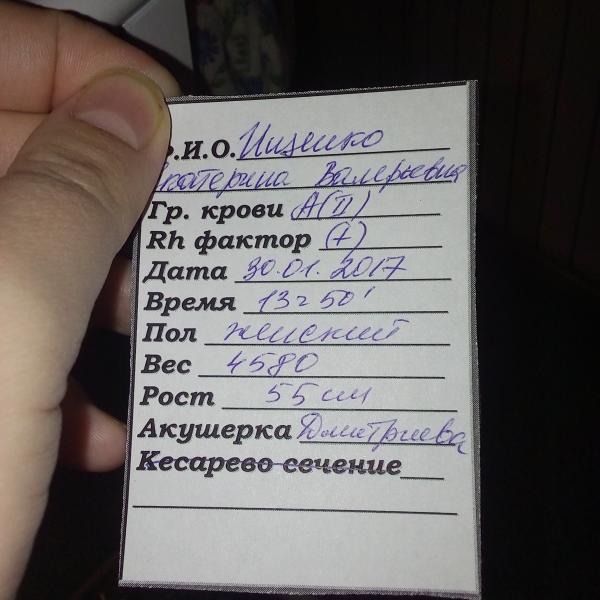 Ф.И.О. Ищенко
Екатерина Валерьевна
Гр. крови A(II)
Rh фактор (+)
Дата 30.01.2017
Время 13ч 50'
Пол женский
Вес 4580
Рост 55 см
Акушерка Дмитриева
Кесарево сечение